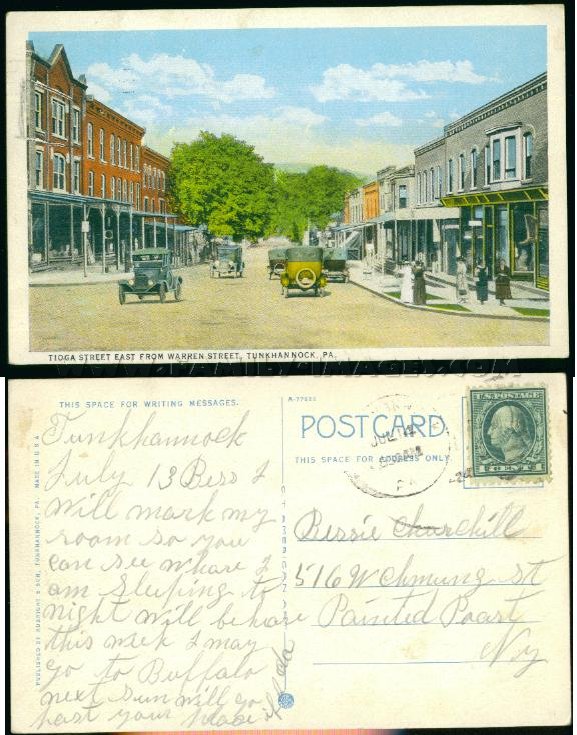 TIOGA STREET EAST FROM WARREN STREET, TUNKHANNOCK, PA.
THIS SPACE FOR WRITING MESSAGES.
Tunkhannock
July 13 Bess I
will mark my
room so you
can see whare I
am sleeping to
night will be hare
this week I may
go to Buffalo
next Sun will go
past your place
Ada
PUBLISHED BY & SON, TUNKHANNOCK, PA. MADE IN U.S.A.
POST CARD
THIS SPACE FOR ADDRESS ONLY.
JUL
PA
U.S. POSTAGE
Bessie Churchill
516 W Chmung St
Painted Poast
Ny